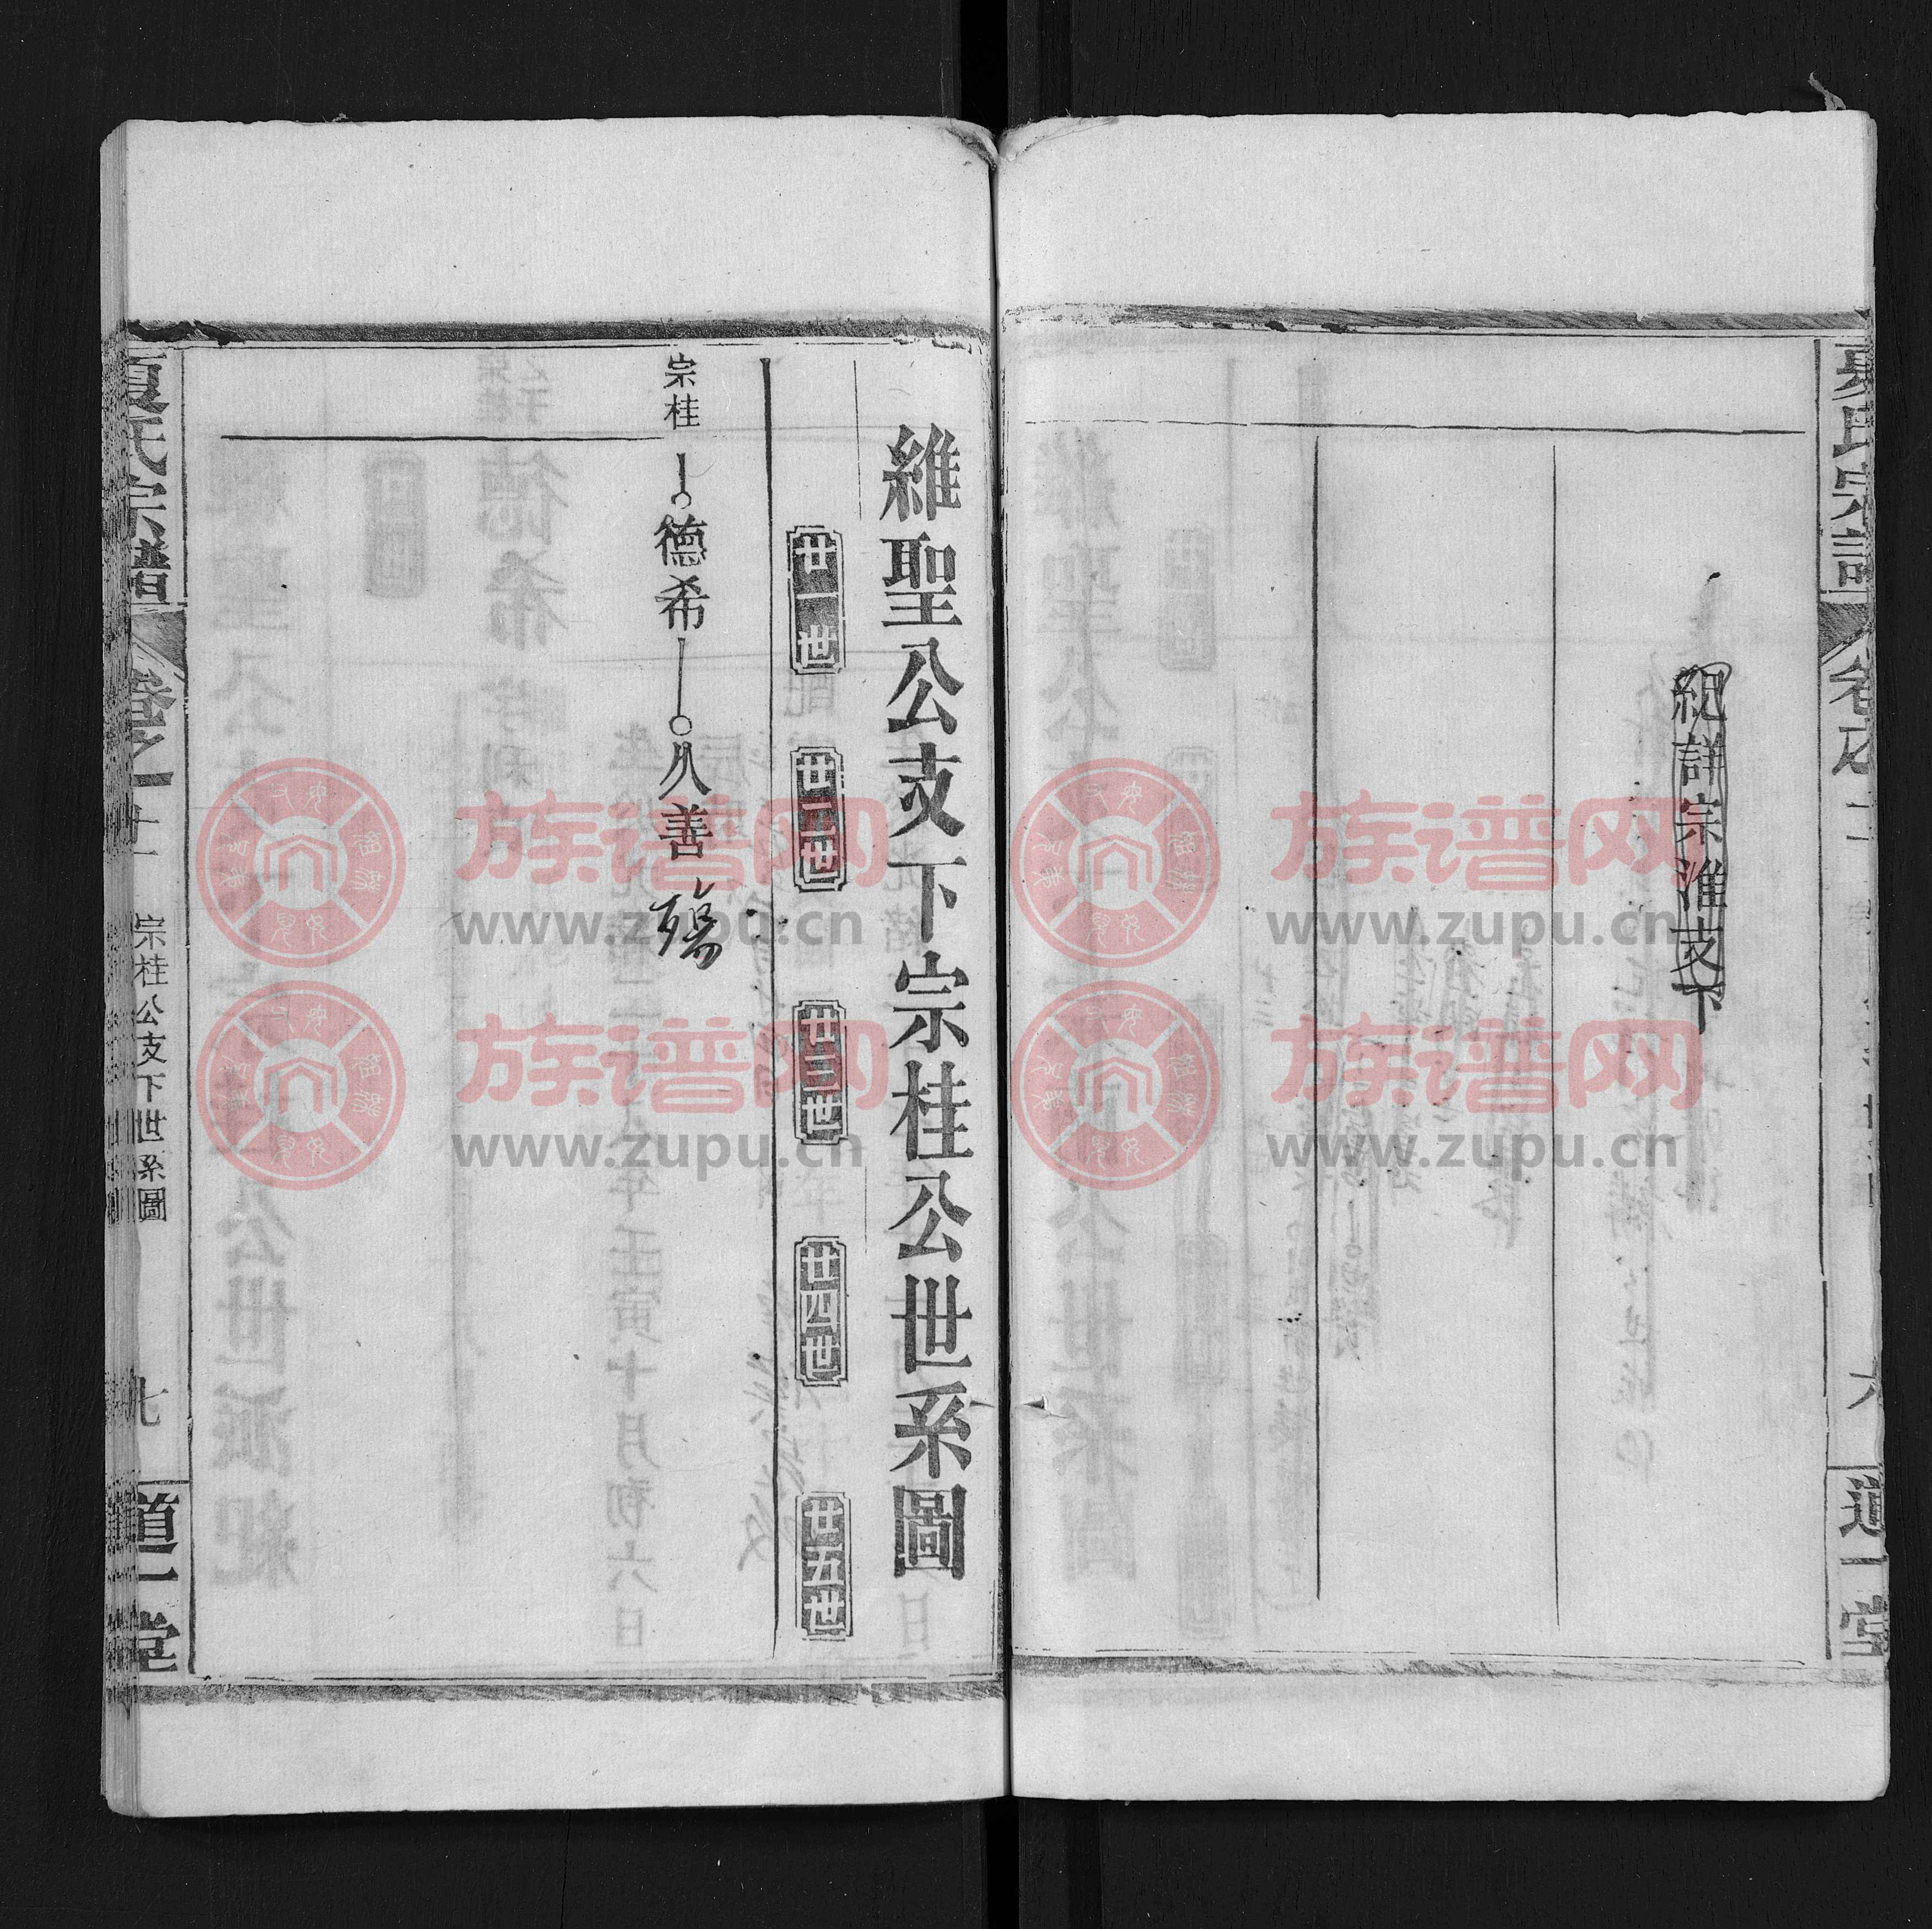 夏氏宗譜
六
道一堂
紀詳宗淮支下
維聖公支下宗桂公世系圖
廿一世
廿二世
廿三世
廿四世
廿五世
宗桂
德希
久善
殤
夏氏宗譜
卷之一
廿一
宗桂公支下世系圖
七
道一堂
族谱网
www.zupu.cn
族谱网
www.zupu.cn
族谱网
www.zupu.cn
族谱网
www.zupu.cn